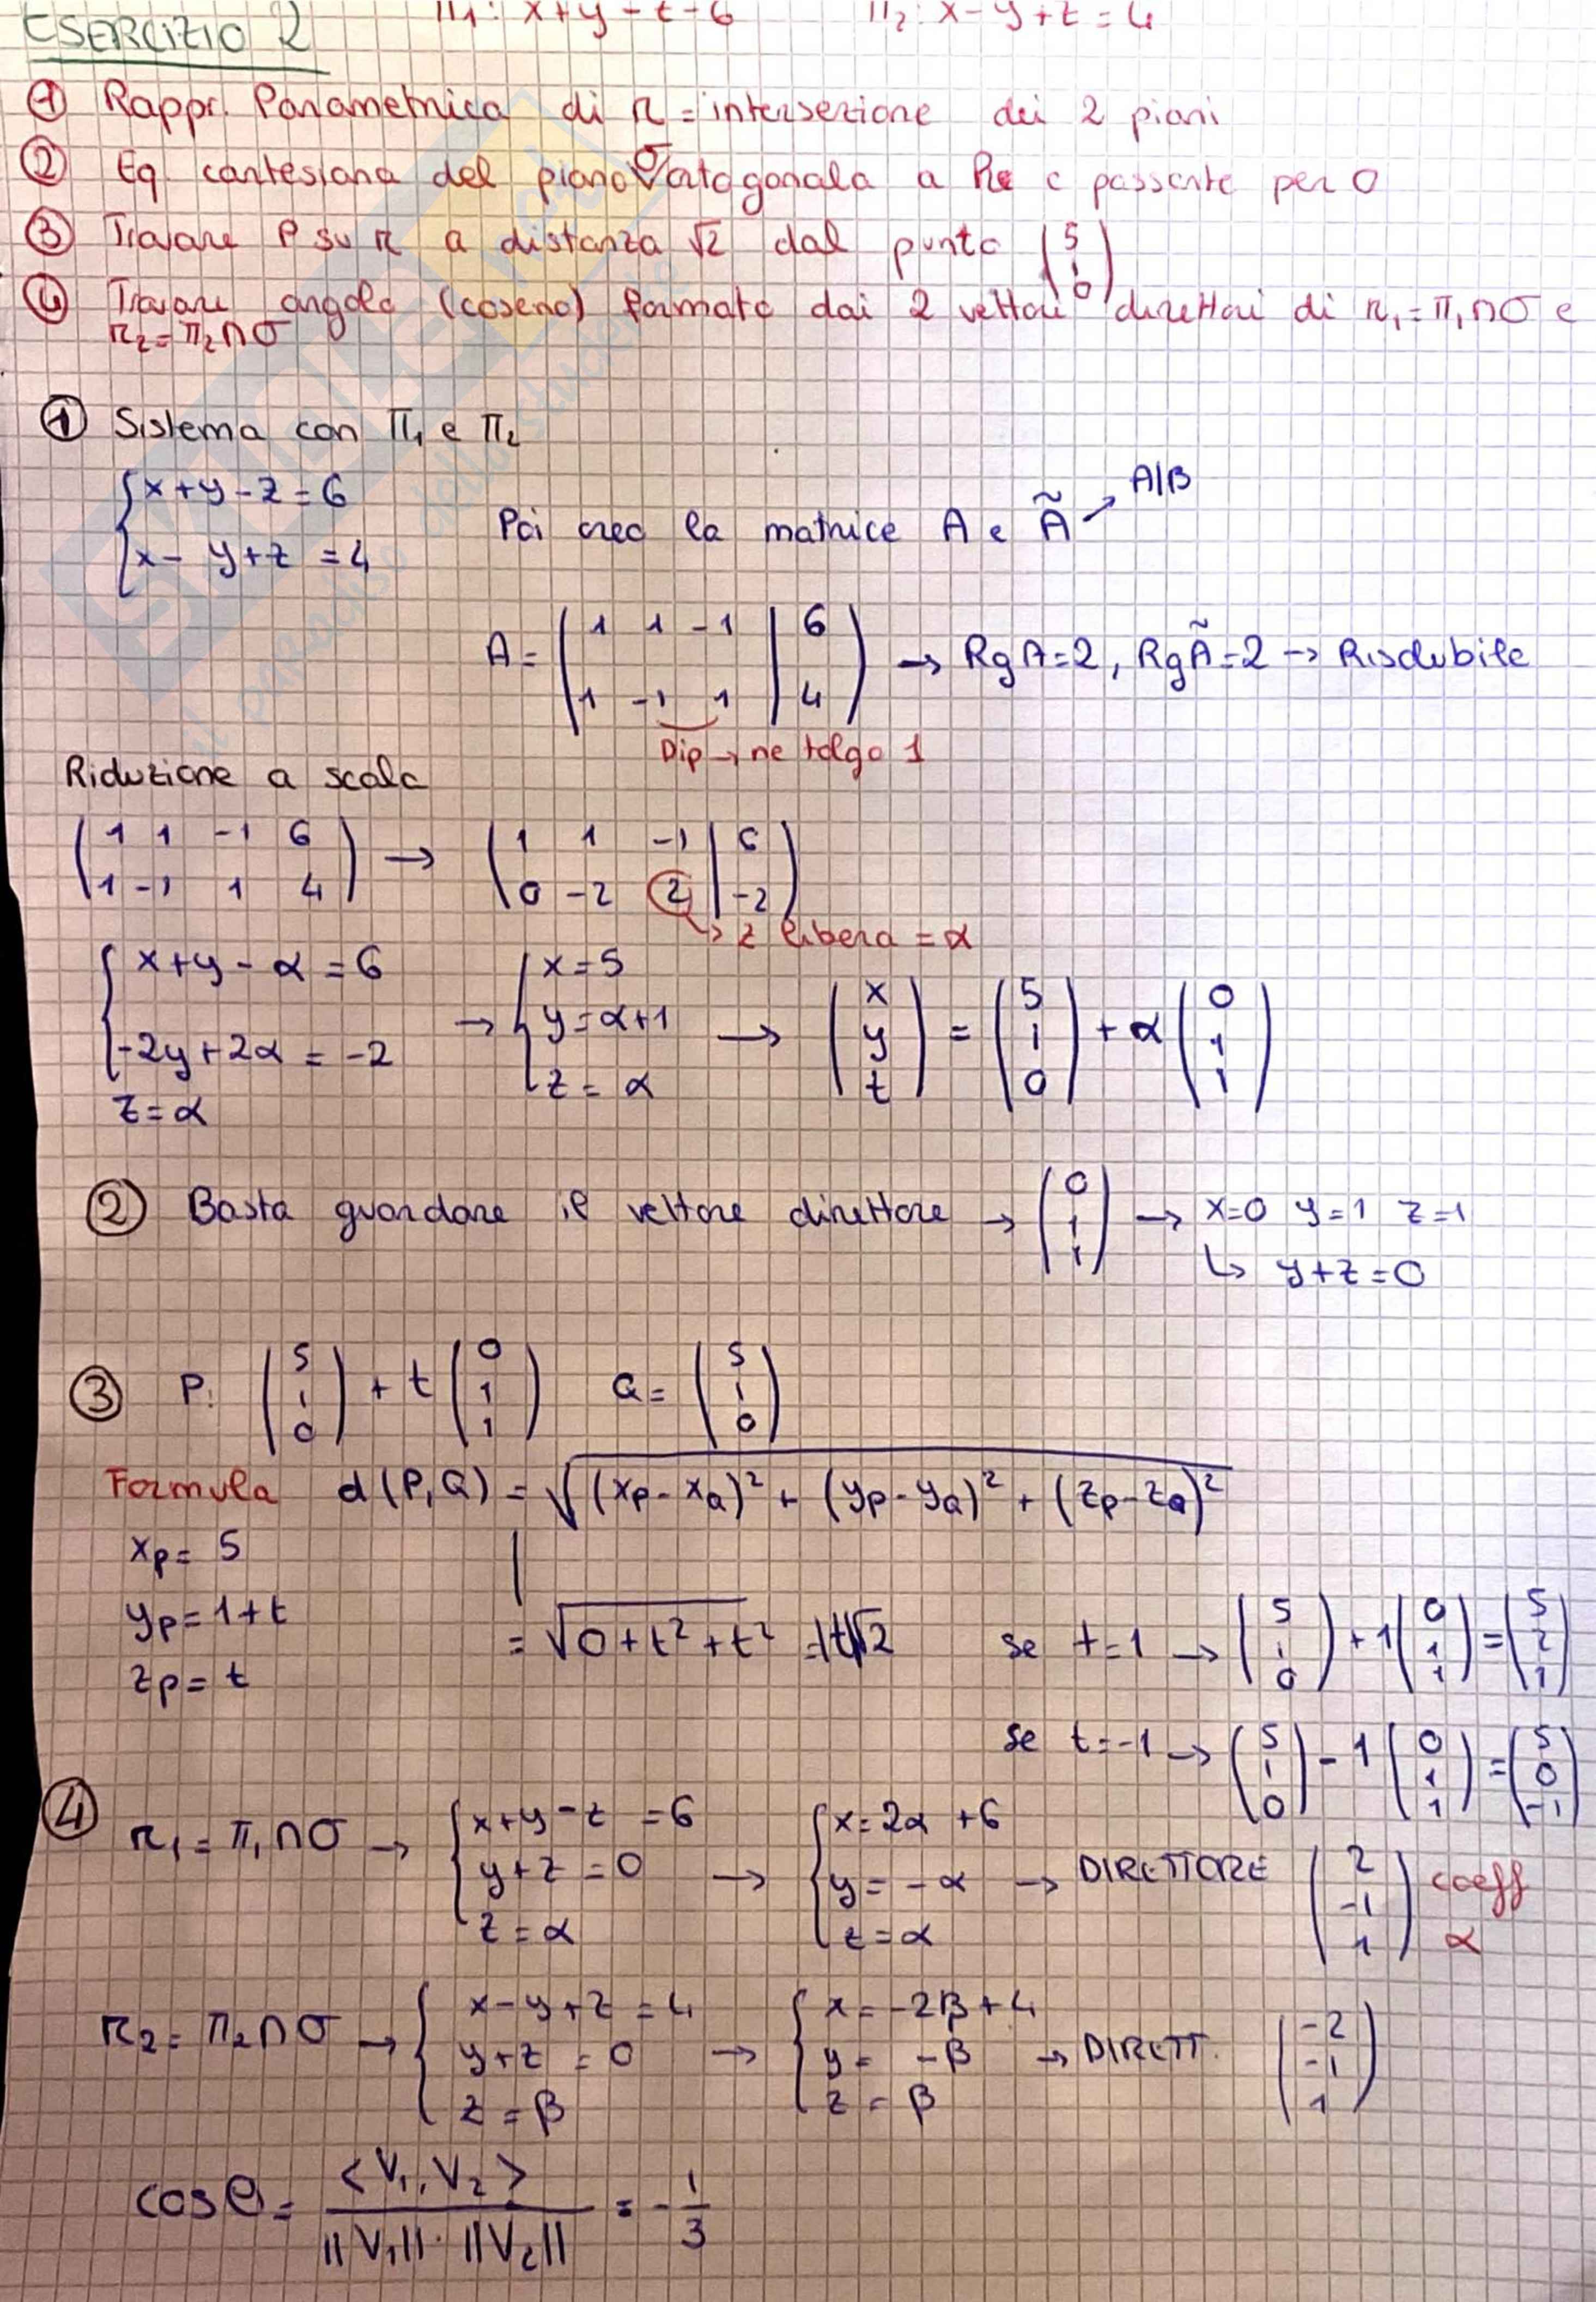 ESERCIZIO 2 Π1: x+y-z=6 Π2: x-y+z=4
① Rappr. Parametrica di r = intersezione dei 2 piani
② Eq cartesiana del piano σ ortogonala a r e passente per O
③ Trovare P su r a distanza √2 dal punto (5 1 0)
④ Trovare angolo (coseno) formato dai 2 vettori direttori di r1=π1∩σ e
r2=π2∩σ
① Sistema con Π1 e Π2
{x+y-z=6
x-y+z=4
Poi creo la matrice A e Ã → A|B
A = (1 1 -1 | 6
1 -1 1 | 4) → RgA=2, RgÃ=2 → Risolubile
Dip → ne tolgo 1
Riduzione a scala
(1 1 -1 6
1 -1 1 4) → (1 1 -1 | 6
0 -2 2 | -2)
↳ z libera = α
{x+y-α=6
-2y+2α=-2
z=α
→ {x=5
y=α+1
z=α
→ (x y z) = (5 1 0) + α (0 1 1)
② Basta guardare il vettore direttore → (0 1 1) → x=0 y=1 z=1
↳ y+z=0
③ P: (5 1 0) + t (0 1 1) Q= (5 1 0)
Formula d(P,Q) = √(xp-xQ)²+(yp-yQ)²+(zp-zQ)²
xp=5
yp=1+t
zp=t
= √0+t²+t² =|t|√2
se t=1 → (5 1 0) +1 (0 1 1) = (5 2 1)
se t=-1 → (5 1 0) -1 (0 1 1) = (5 0 -1)
④ r1=π1∩σ → {x+y-z=6
y+z=0
z=α
→ {x=2α+6
y=-α
z=α
→ DIRETTORE (2 -1 1) coeff α
r2=π2∩σ → {x-y+z=4
y+z=0
z=β
→ {x=-2β+4
y=-β
z=β
→ DIRETT. (-2 -1 1)
cosθ= <V1, V2> / ||V1||·||V2|| = -1/3